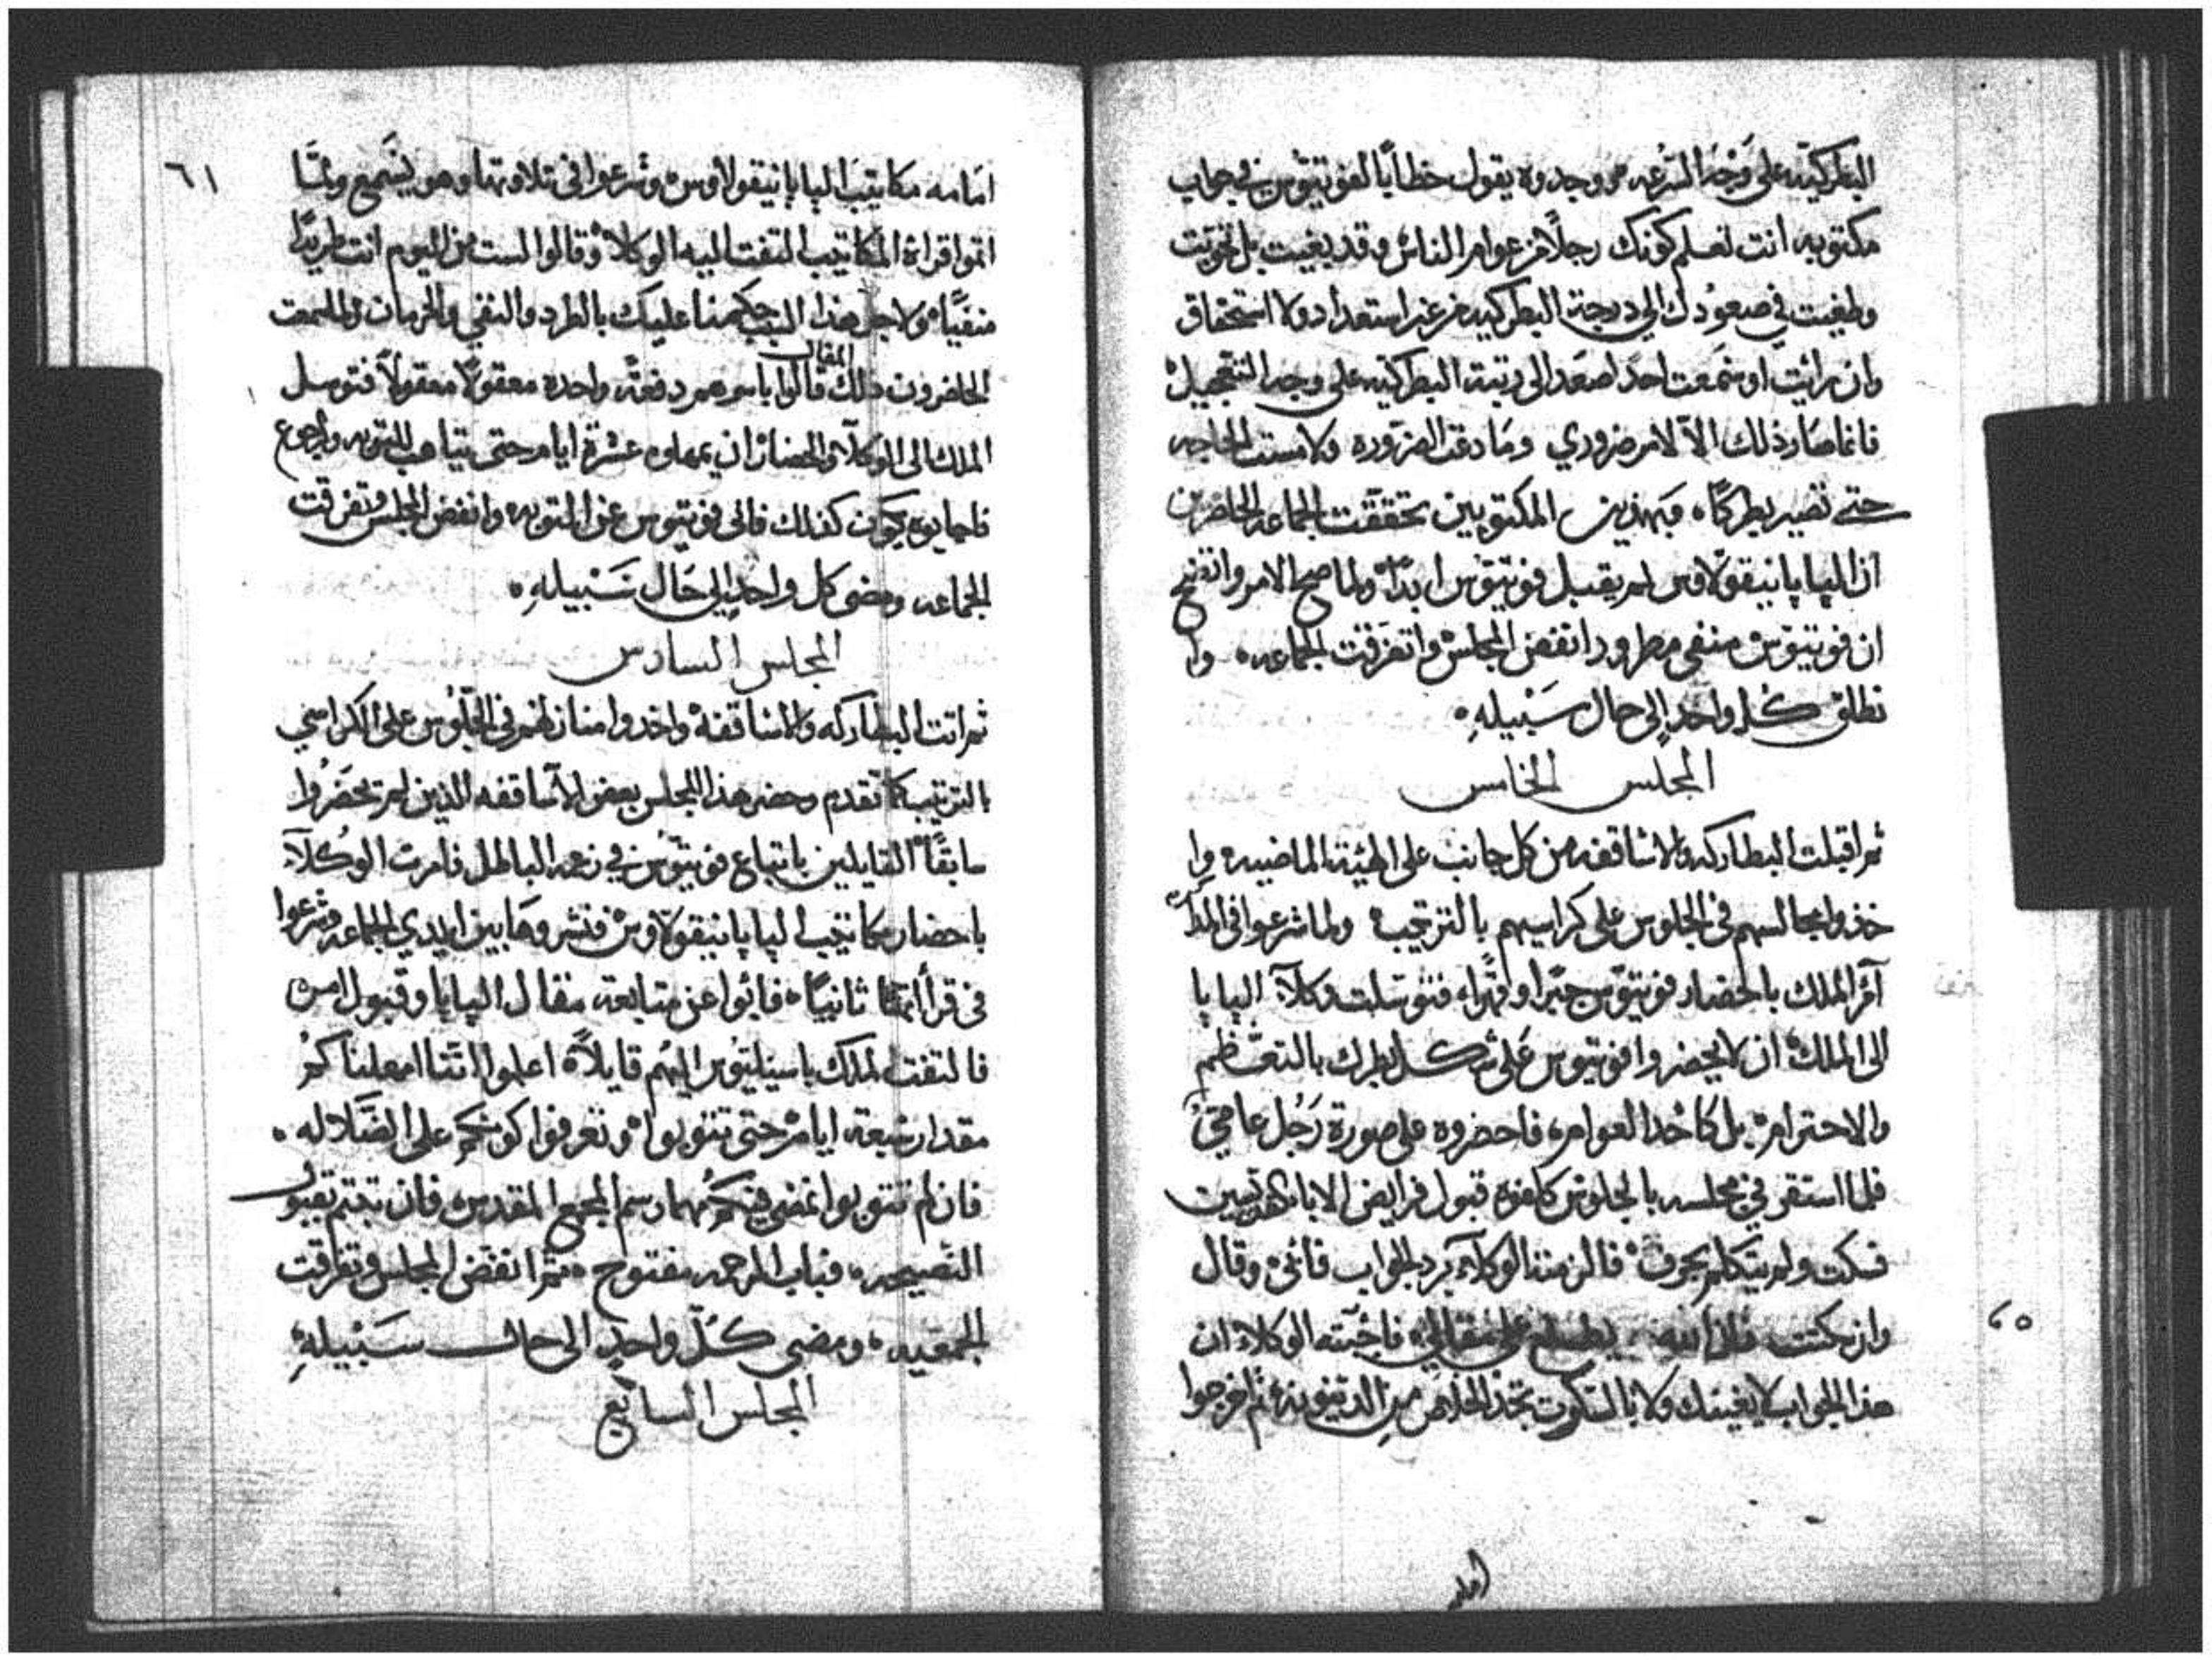 البطركيه على وجه السرعه ووجدوه يقول خطاباً لفوتيوس في جواب
مكتوبه انت تعلم كونك رجلاً من عوام الناس وقد بغيت بل تجربت
وطغيت في صعودك الى درجة البطركيه من غير استعداد ولا استحقاق
وان رايت او سمعت احد اصعد الى رتبة البطركيه على وجه التعجيل
فانما صار ذلك الا لامر ضروري وما دعت الضروره ولا مست الحاجه
حتى تصير بطركاً، فبهذين المكتوبين تحققت الجماعه الحاضرين
ان الپاپا نيقولاوس لم يقبل فوتيوس ابداً ولما صح الامر واتضح
ان فوتيوس منفى مطرود انفض المجلس واتفرقت الجماعه، وا
نطلق كل واحد الى حال سبيله
المجلس الخامس
ثم اقبلت البطاركه والاساقفه من كل جانب على الهيئة الماضيه وا
خذوا مجالسهم في الجلوس على كراسيهم بالترتيب ولما شرعوا في
آمر الملك باحضار فوتيوس جبراً وقهراً، فتوسلت وكلآء الپاپا
الى الملك ان لا يحضروا فوتيوس على شكل بطرك بالتعظم
والاحترام، بل كأحد العوام، فاحضروه على صورة رجل عامي
فلما استقر في مجلسه بالجلوس كلفوه قبول فرايض الابا القديسين
فسكت ولم يتكلم بحرف فالزمته الوكلآء برد الجواب فأبى وقال
وان سكتت فان الله يطلع على مقالي، فاجبته الوكلاء ان
هذا الجواب لا يغيثك ولا بالسكوت تجد الخلاص من الدينونه ثم اخرجوا
امامه
٦٠
٦١
امامه مكاتيب الپاپا نيقولاوس وشرعوا في تلاوتها وهو يسمع ولما
اتموا قراة المكاتيب التفت اليه الوكلاء وقالوا الست من اليوم انت طريدًا
منفيًا، ولاجل هذا السبب حكمنا عليك بالطرد والنفي والحرمان ولما سمعت
الحاضرون ذلك المقال قالوا باسرهم دفعةً واحده معقولاً معقولاً فتوسل
الملك الى الوكلآ والحضار ان يمهلوه عشرة ايام حتى يتاهب للتوبه والرجوع
فاجابوه يكون كذلك فابى فوتيوس عن التوبه وانفض المجلس وتفرقت
الجماعه ومضى كل واحد الى حال سبيله
المجلس السادس
ثم اتت البطاركه والاساقفة واخذوا منازلهم في الجلوس على الكراسي
بالترتيب كما تقدم وحضر هذا المجلس بعض الآساقفه الذين لم يحضروا
سابقًا القايلين باتباع فوتيوس في زعمه الباطل فامرت الوكلآء
باحضار مكاتيب الپاپا نيقولاوس فنشروها بين ايدي الجماعه وشرعوا
في قراأتها ثانيًا، فأبوا عن متابعة مقال الپاپا وقبول امره
فالتفت الملك باسيليوس اليهم قايلاً، اعلموا اننا امهلناكم
مقدار سبعة ايام حتى تتوبوا وتعرفوا كونكم على الضلاله
فان لم تتوبوا نمضي فيكم مهما رسم المجمع المقدس، فان تبتم بقبول
النصيحه، فباب الرحمه مفتوح، ثم انفض المجلس وتفرقت
الجمعيه، ومضى كل واحد الى حال سبيله
المجلس السابع